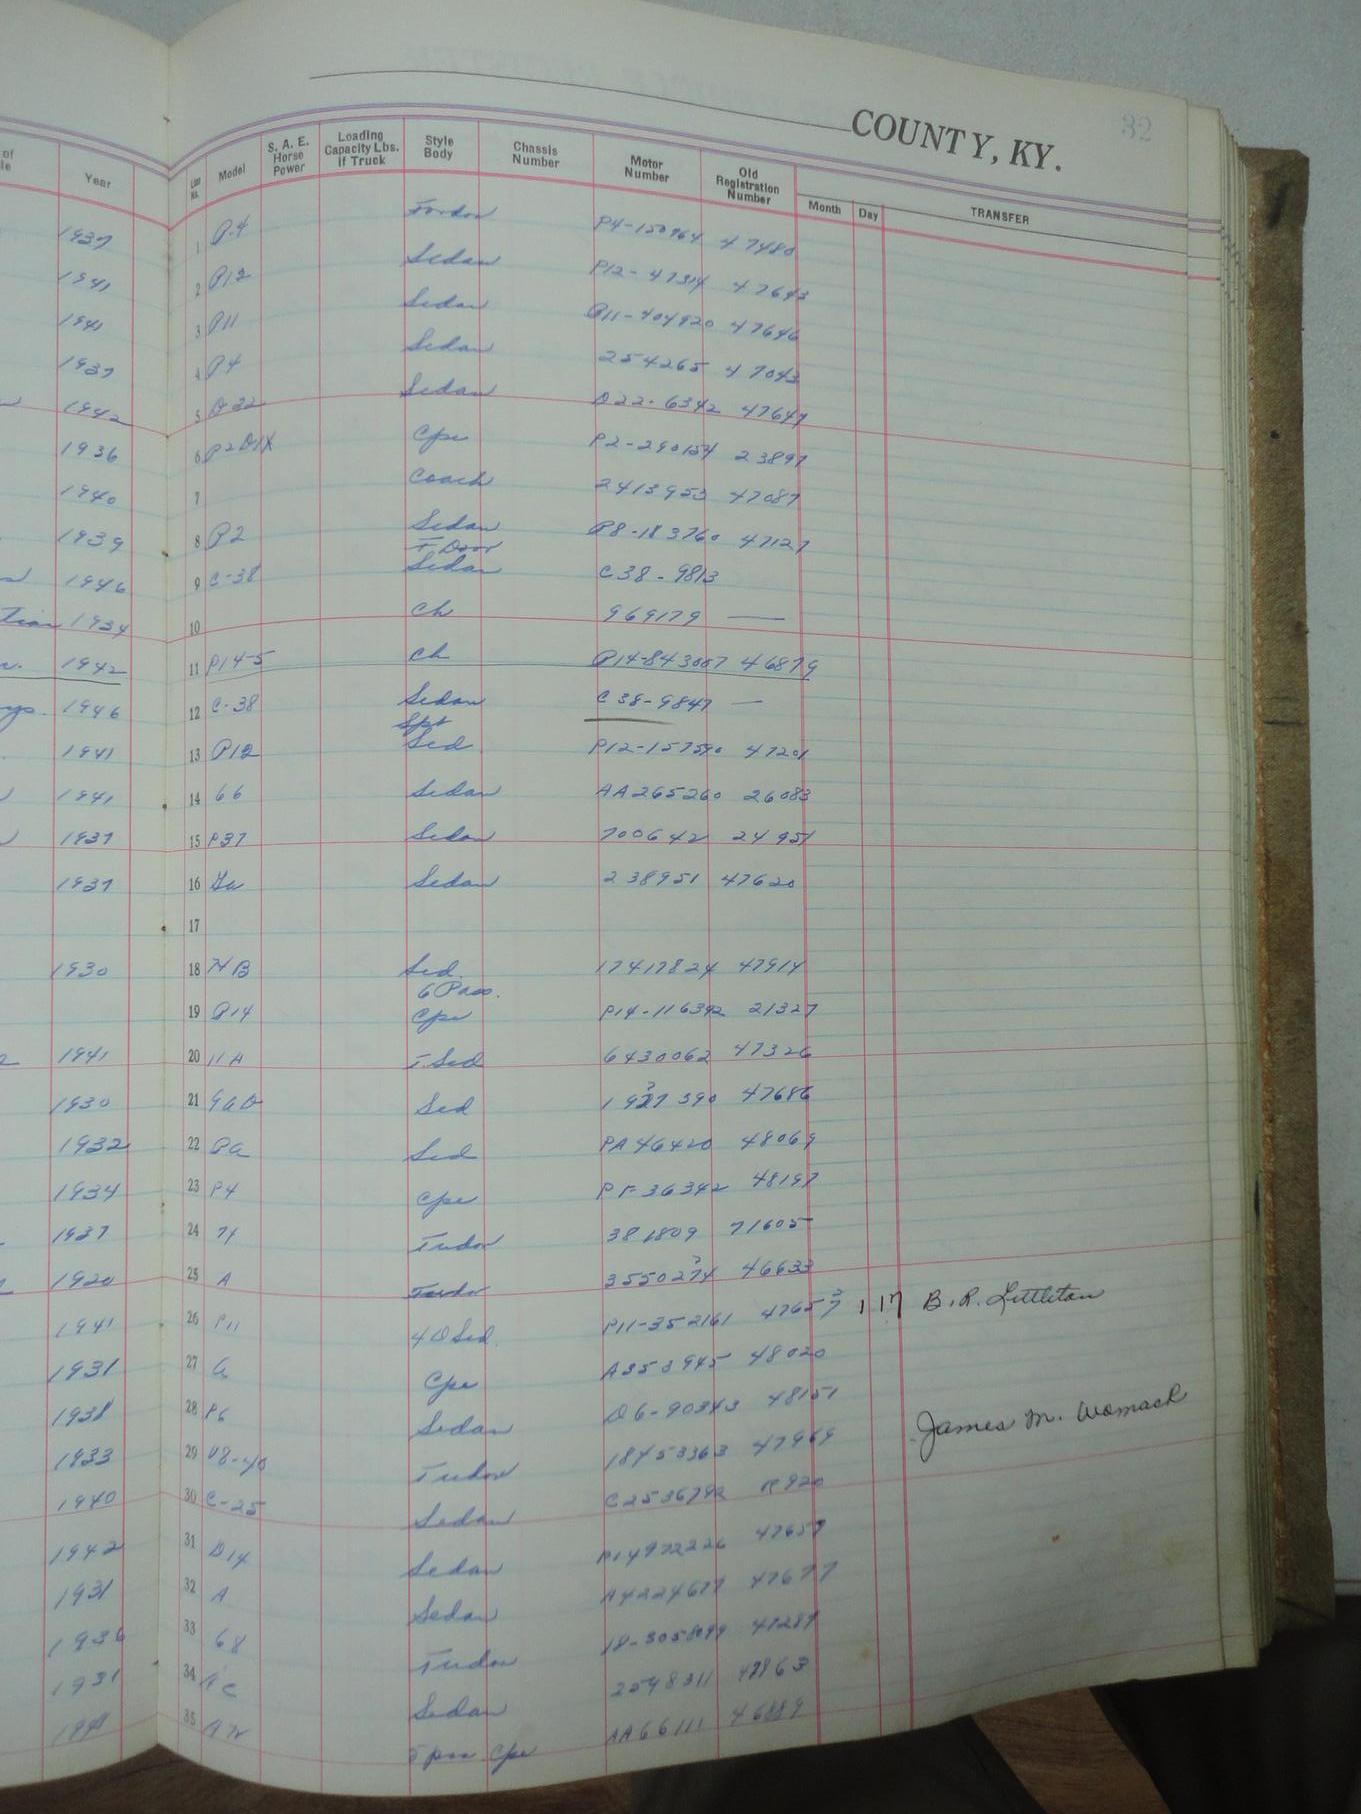 COUNTY, KY.
32
of Year Line No. Model S. A. E. Horse Power Loading Capacity Lbs. if Truck Style Body Chassis Number Motor Number Old Registration Number Month Day TRANSFER
1937 1 P.4 Fordor P4-150964 47480
1941 2 P12 Sedan P12-47314 47643
1941 3 P11 Sedan P11-404920 47646
1937 4 P4 Sedan 254265 47043
1942 5 Sedan D22-6342 47647
1936 6 Cpe P2-290154 23897
1940 7 Coach 2413953 47087
1939 8 P2 Sedan P8-183760 47127
1946 9 C-38 F Door Sedan C38-9813
tion 1934 10 Ch 969179 —
1942 11 P14-5 Ch P14-843007 46879
1946 12 C-38 Sedan C38-9847 —
1941 13 P12 Spt Sed P12-157590 47201
1941 14 66 Sedan AA265260 26083
1937 15 P37 Sedan 700642 24951
1937 16 Sedan 238951 47620
17
1930 18 Sed. 17417824 47914
19 P14 6 Pass. Cpe P14-116392 21327
1941 20 11A T.Sed 6430062 47326
1930 21 Sed 47686
1932 22 PA Sed PA46420 48069
1934 23 P4 Cpe PF36342 48197
1937 24 74 Tudor 381809 71605
1920 25 A Tudor 46633
1941 26 P11 4 D Sed. P11-352161 1 17 B.R. Littleton
1931 27 Cpe A353945 48020
1938 28 P6 Sedan D6-90343 48151
James M. Womack
1933 29 V8-40 Tudor 18453363 47969
1940 30 C-25 Sedan C2536792 R920
1942 31 D14 Sedan P14972226 47657
1931 32 A Sedan A4224677 47677
1936 33 68 Tudor 18-3058099 47287
1931 34 Sedan 2598311 47863
1941 35 5 pass Cpe AA66111 46889